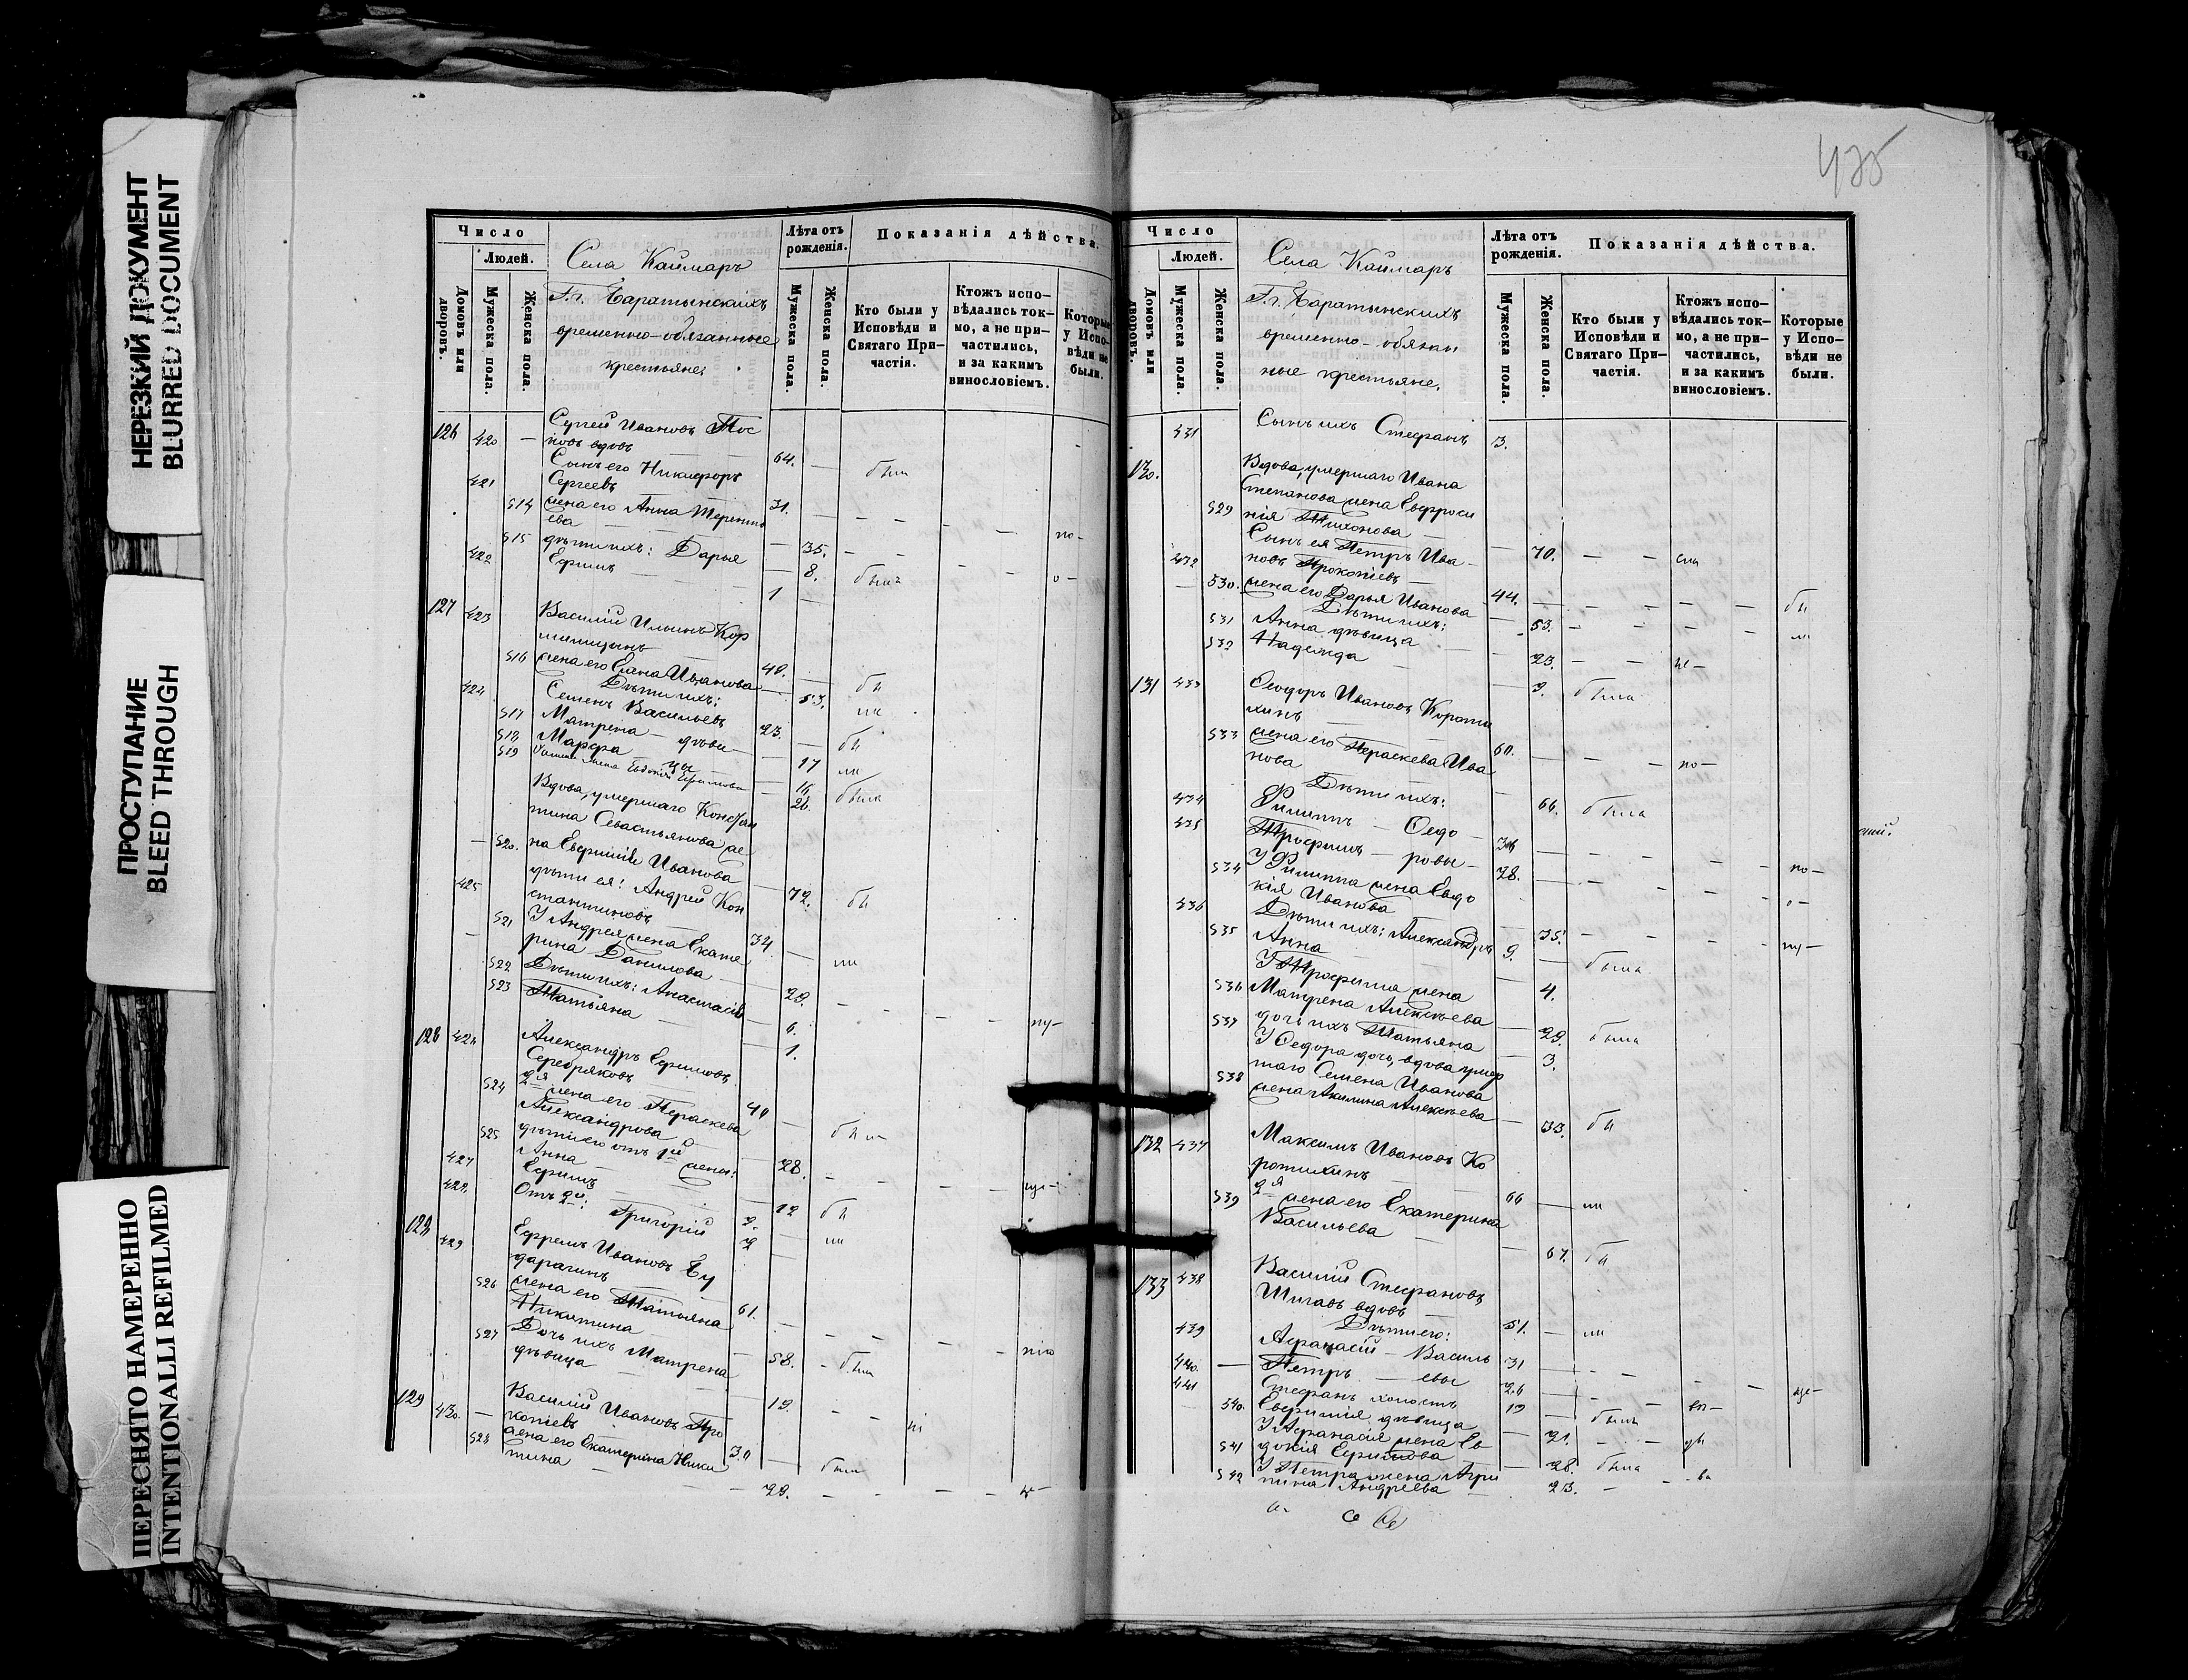 НЕРЕЗКИЙ ДОКУМЕНТ
BLURRED DOCUMENT
ПРОСТУПАНИЕ
BLEED THROUGH
ПЕРЕСНЯТО НАМЕРЕННО
INTENTIONALLI REFILMED
Число
Людей.
Домовъ или дворовъ.
Мужеска пола.
Женска пола.
Села Каймаръ
Г.г. Баратынскихъ
временно-обязанные
крестьяне.
Лѣта отъ рожденія.
Мужеска пола.
Женска пола.
Показанія дѣйства.
Кто были у Исповѣди и Святаго При-частія.
Ктожъ испо-вѣдались ток-мо, а не при-частились, и за какимъ винословіемъ.
Которые у Испо-вѣди не были.
126 420 — Сергей Ивановъ
вдовъ 64. —
421 Сынъ его Никифоръ
Сергеевъ 31. —
514 жена его Анна Терентье
ева — 35.
515 дѣти ихъ: Дарья — 8.
422 Ефимъ 1 —
127 423 Василій Ильинъ Кор
милицынъ 48. —
516 жена его Елена Иванова — 53.
Дѣти ихъ:
424 Семенъ Васильевъ 23. —
517 Матрена — дѣви — 17
518 Марфа цы 16
519 26.
Вдова, умершаго Констан
тина Севастьянова же
— 520. на Евфимія Иванова — 72.
425 дѣти ея: Андрей Кон
стантиновъ 34. —
521 У Андрея жена Екате
рина Данилова — 29.
522 Дѣти ихъ: Анастасія — 6.
523 Татьяна — 1.
128 426 Александръ Ефимовъ
Серебряковъ 40 —
524 2я жена его Параскева
Александрова — 28.
дѣти его отъ 1й жены:
525 Анна — 12
427 Ефимъ 9. —
428. Отъ 2й: Григорій 2 —
129 429 Ефремъ Ивановъ Бу
дарагинъ 61. —
526 жена его Татьяна
Никитина — 58.
527 Дочь ихъ Матрена
дѣвица — 19.
129 430. — Василій Ивановъ Про
копіевъ 30 —
528 жена его Екатерина Ники
тина — 29.
435
Число
Людей.
Домовъ или дворовъ.
Мужеска пола.
Женска пола.
Села Каймаръ
Г.г. Баратынскихъ
временно-обязан
ные крестьяне.
Лѣта отъ рожденія.
Мужеска пола.
Женска пола.
Показанія дѣйства.
Кто были у Исповѣди и Святаго При-частія.
Ктожъ испо-вѣдались ток-мо, а не при-частились, и за какимъ винословіемъ.
Которые у Испо-вѣди не были.
431 Сынъ ихъ Стефанъ 3.
130. Вдова, умершаго Ивана
Степанова жена Евфроси
529 нія Тихонова — 70.
432 Сынъ ея Петръ Ива
новъ Прокопіевъ — 44. —
530. жена его Дарья Иванова — 53.
Дѣти ихъ:
531 Анна дѣвица — 23.
532 Надежда — 9. была
131 433 Ѳеодоръ Ивановъ Короти
хинъ 60. —
533 жена его Параскева Ива
нова — 66. была
Дѣти ихъ:
434 Филиппъ — Ѳедо —
435 Трофимъ — ровы — 28. —
534 У Филиппа жена Евдо
кія Иванова — 35.
436 Дѣти ихъ: Александръ 9. —
535 Анна — 4.
У Трофима жена
536 Матрена Алексѣева — 29. была
537 дочь ихъ Татьяна — 3.
У Ѳедора дочь, вдова умер
шаго Семена Иванова
538 жена Акилина Алексѣева — 33.
132 437 Максимъ Ивановъ Ко
ротихинъ 66 —
539 2я жена его Екатерина
Васильева — 67.
133 438 Василій Стефановъ
вдовъ — 51. —
Дѣти его:
439 Афанасій — Василь 31
440. — Петръ — евы 26 —
441 Стефанъ холостъ 19 —
540. Евфимія дѣвица — 21.
У Афанасія жена Ев
541 докія Ефимова — 28. была
542 У Петра жена Агри
пина Андреева — 23.